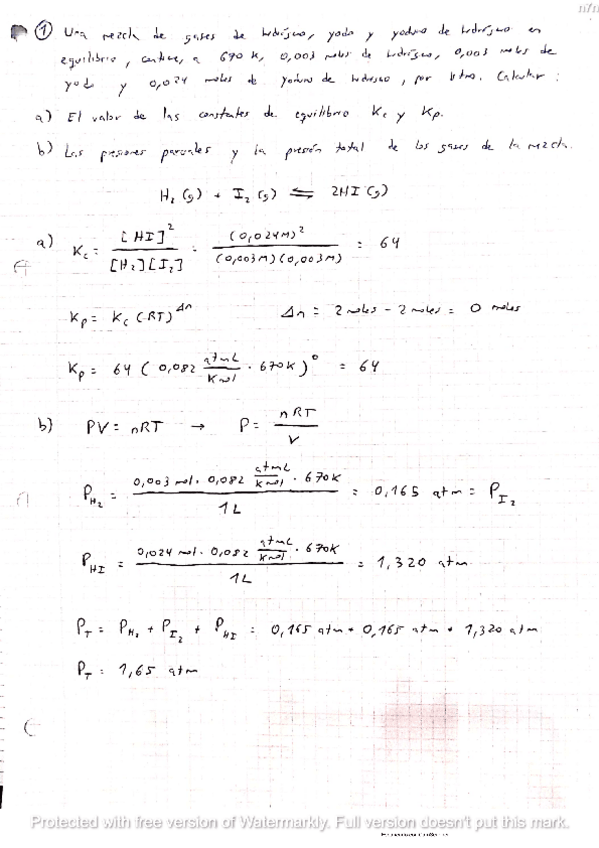 n/n
① Una mezcla de gases de hidrógeno, yodo y yoduro de hidrógeno en
equilibrio, contiene, a 690 K, 0,003 moles de hidrógeno, 0,003 moles de
yodo y 0,024 moles de yoduro de hidrógeno, por litro. Calcular:
a) El valor de las constantes de equilibrio Kc y Kp.
b) Las presiones parciales y la presión total de los gases de la mezcla.
H₂ (g) + I₂ (g) ⇌ 2HI (g)
a) Kc = [HI]² / [H₂][I₂] = (0,024M)² / (0,003M)(0,003M) = 64
Kp = Kc (RT)^Δn Δn = 2 moles - 2 moles = 0 moles
Kp = 64 (0,082 atmL/Kmol · 670K)⁰ = 64
b) PV = nRT → P = nRT / V
P_H₂ = 0,003 mol · 0,082 atmL/Kmol · 670K / 1L = 0,165 atm = P_I₂
P_HI = 0,024 mol · 0,082 atmL/Kmol · 670K / 1L = 1,320 atm
P_T = P_H₂ + P_I₂ + P_HI = 0,165 atm + 0,165 atm + 1,320 atm
P_T = 1,65 atm
Protected with free version of Watermarkly. Full version doesn't put this mark.